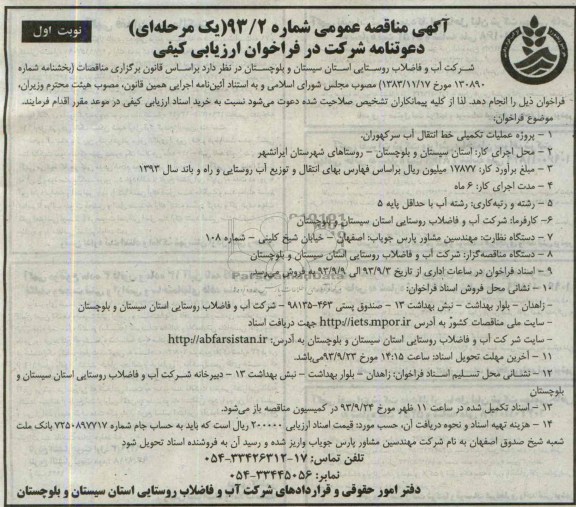 نوبت اول
آگهی مناقصه عمومی شماره ۹۳/۲(یک مرحله‌ای)
دعوتنامه شرکت در فراخوان ارزیابی کیفی
شرکت آب و فاضلاب روستایی استان سیستان و بلوچستان در نظر دارد براساس قانون برگزاری مناقصات (بخشنامه شماره
۱۳۰۸۹۰ مورخ ۱۳۸۳/۱۱/۱۷) مصوب مجلس شورای اسلامی و به استناد آئین‌نامه اجرایی همین قانون، مصوب هیئت محترم وزیران،
فراخوان ذیل را انجام دهد. لذا از کلیه پیمانکاران تشخیص صلاحیت شده دعوت می‌شود نسبت به خرید اسناد ارزیابی کیفی در موعد مقرر اقدام فرمایند.
موضوع فراخوان:
۱ – پروژه عملیات تکمیلی خط انتقال آب سرکهوران.
۲ – محل اجرای کار: استان سیستان و بلوچستان – روستاهای شهرستان ایرانشهر
۳ – مبلغ برآورد کار: ۱۷۸۷۷ میلیون ریال براساس فهارس بهای انتقال و توزیع آب روستایی و راه و باند سال ۱۳۹۳
۴ – مدت اجرای کار: ۶ ماه
۵ – رشته و رتبه‌کاری: رشته آب با حداقل پایه ۵
۶– کارفرما: شرکت آب و فاضلاب روستایی استان سیستان و بلوچستان
۷ – دستگاه نظارت: مهندسین مشاور پارس جویاب: اصفهان – خیابان شیخ کلینی – شماره ۱۰۸
۸ – دستگاه مناقصه‌گزار: شرکت آب و فاضلاب روستایی استان سیستان و بلوچستان
۹ – اسناد فراخوان در ساعات اداری از تاریخ ۹۳/۹/۳ الی ۹۳/۹/۹ به فروش می‌رسد.
۱۰ – نشانی محل فروش اسناد فراخوان:
– زاهدان – بلوار بهداشت – نبش بهداشت ۱۳ – صندوق پستی ۴۶۳–۹۸۱۳۵ – شرکت آب و فاضلاب روستایی استان سیستان و بلوچستان
– سایت ملی مناقصات کشور به آدرس http://iets.mpor.ir جهت دریافت اسناد
– سایت شرکت آب و فاضلاب روستایی استان سیستان و بلوچستان به آدرس: http://abfarsistan.ir
۱۱ – آخرین مهلت تحویل اسناد: ساعت ۱۴:۱۵ مورخ ۹۳/۹/۲۳می‌باشد.
۱۲ – نشانی محل تسلیم اسناد فراخوان: زاهدان – بلوار بهداشت – نبش بهداشت ۱۳ – دبیرخانه شرکت آب و فاضلاب روستایی استان سیستان و
بلوچستان
۱۳ – اسناد تکمیل شده در ساعت ۱۱ ظهر مورخ ۹۳/۹/۲۴ در کمیسیون مناقصه باز می‌شود.
۱۴ – هزینه تهیه اسناد و نحوه دریافت آن، حسب مورد: قیمت اسناد ارزیابی ۲۰۰۰۰۰ ریال است که باید به حساب جام شماره ۷۲۵۰۸۹۷۷۱۷ بانک ملت
شعبه شیخ صدوق اصفهان به نام شرکت مهندسین مشاور پارس جویاب واریز شده و رسید آن به فروشنده اسناد تحویل شود
تلفن تماس: ۱۷–۳۳۴۲۶۳۱۲–۰۵۴
نمابر: ۳۳۴۴۵۰۵۶–۰۵۴
دفتر امور حقوقی و قراردادهای شرکت آب و فاضلاب روستایی استان سیستان و بلوچستان